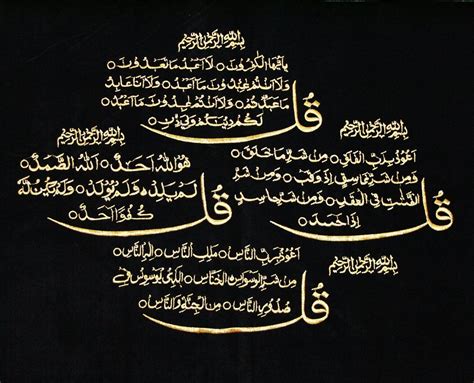 بسم الله الرحمن الرحيم
قل يايها الكفرون ○ لا اعبد ما تعبدون ○
ولا انتم عبدون ما اعبد ○ ولا انا عابد
ما عبدتم ○ ولا انتم عبدون ما اعبد ○
لكم دينكم ولي دين ○
بسم الله الرحمن الرحيم
قل اعوذ برب الفلق ○ من شر ما خلق ○
ومن شر غاسق اذا وقب ○ ومن شر
النفثت في العقد ○ ومن شر حاسد
اذا حسد ○
بسم الله الرحمن الرحيم
قل هو الله احد ○ الله الصمد ○
لم يلد ○ ولم يولد ○ ولم يكن له
كفوا احد ○
بسم الله الرحمن الرحيم
قل اعوذ برب الناس ○ ملك الناس ○ اله الناس ○
من شر الوسواس ○ الخناس ○ الذي يوسوس في
صدور الناس ○ من الجنة والناس ○